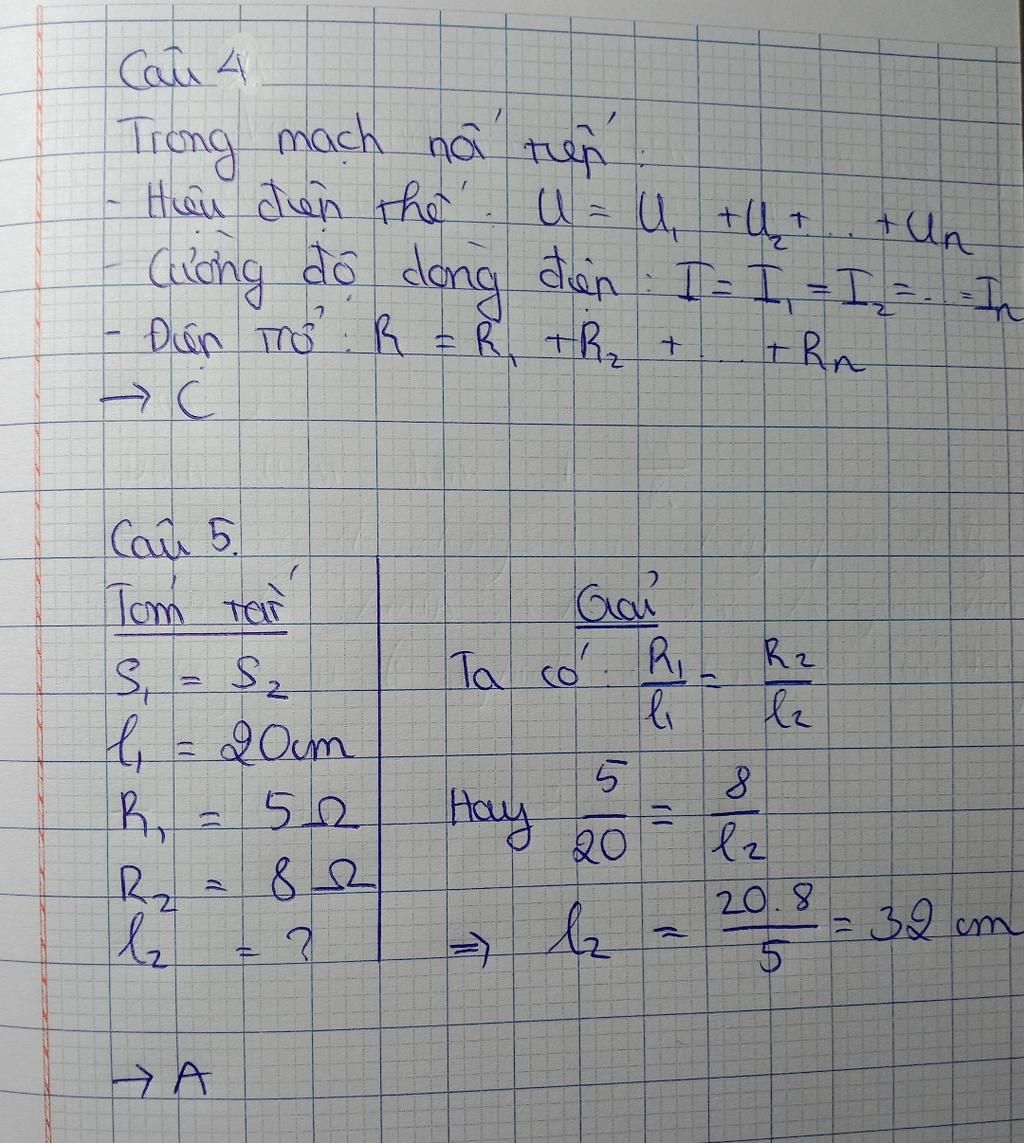 Câu 4
Trong mạch nối tiếp :
- Hiệu điện thế : U = U₁ + U₂ + ... + Un
- Cường độ dòng điện : I = I₁ = I₂ = ... = In
- Điện trở : R = R₁ + R₂ + ... + Rn
→ C
Câu 5.
Tóm tắt
S₁ = S₂
l₁ = 20cm
R₁ = 5 Ω
R₂ = 8 Ω
l₂ = ?
Giải
Ta có : R₁/l₁ = R₂/l₂
Hay 5/20 = 8/l₂
⇒ l₂ = 20.8/5 = 32 cm
→ A